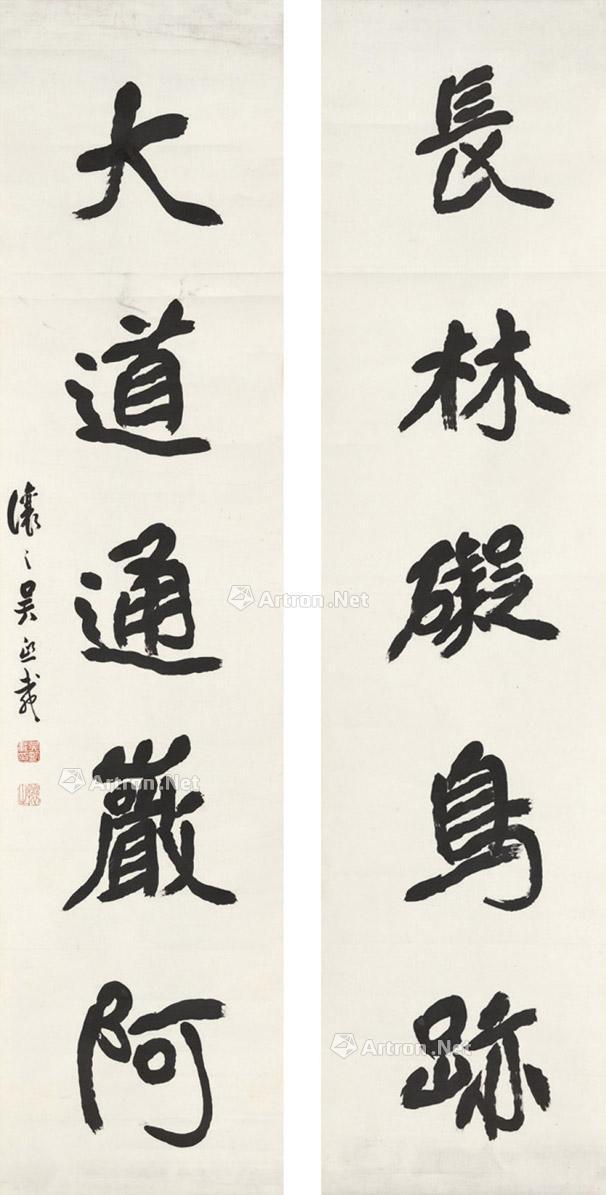 長林礙鳥跡
大道通巖阿
讓之吳熙載
Artron.Net
Artron.Net
Artron.Net